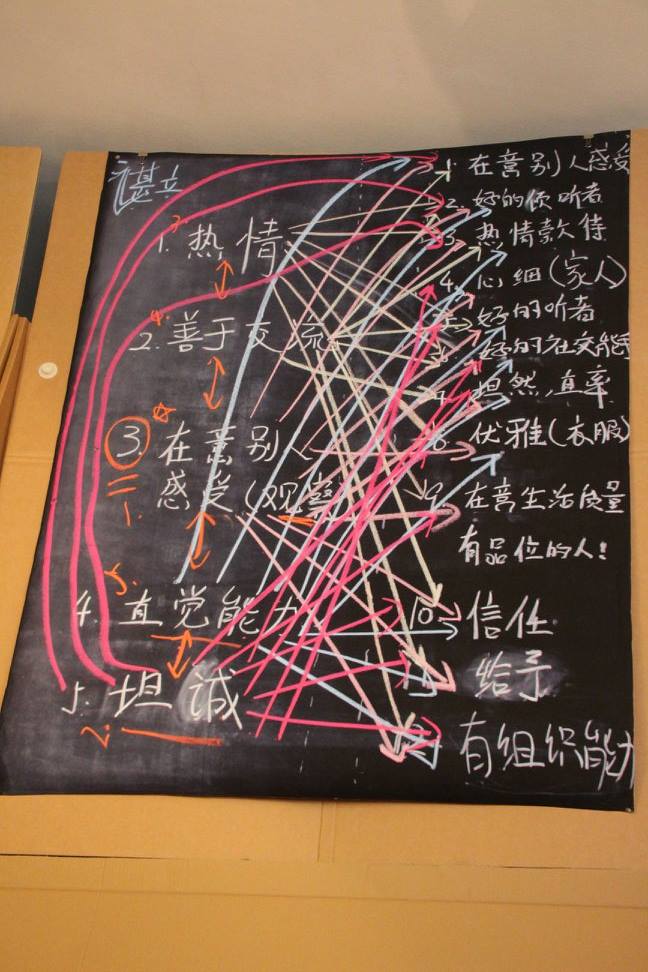 谌立
3.
1. 热情
4.
2. 善于交流
3. 在意别人
感受(观察)
1.
5.
4. 直觉能力
5. 坦诚
2.
1. 在意别人感受
2. 好的倾听者
3. 热情款待
4. 心细(家人)
好的听者
好的社交能
7 坦然,直率
8 优雅(衣服)
9 在意生活质量
有品位的人!
10 信任
给予
12 有组织能力